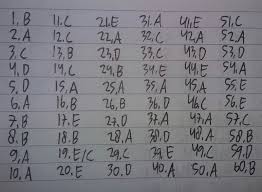 1, B 11, C 21, E 31, A 41, E 51, C
2, A 12, C 22, A 32, C 42, A 52, A
3, C 13, B 23, D 33, C 43, D 53, D
4, D 14, C 24, B 34, E 44, E 54, A
5, D 15, A 25, A 35, A 45, A 55, E
6, A 16, B 26, B 36, D 46, C 56, E
7, B 17, E 27, D 37, A 47, A 57, C
8, B 18, B 28, A 38, D 48, A 58, B
9, A 19, E/C 29, C 39, E 49, C 59, D
10, A 20, E 30, D 40, A 50, A 60, B